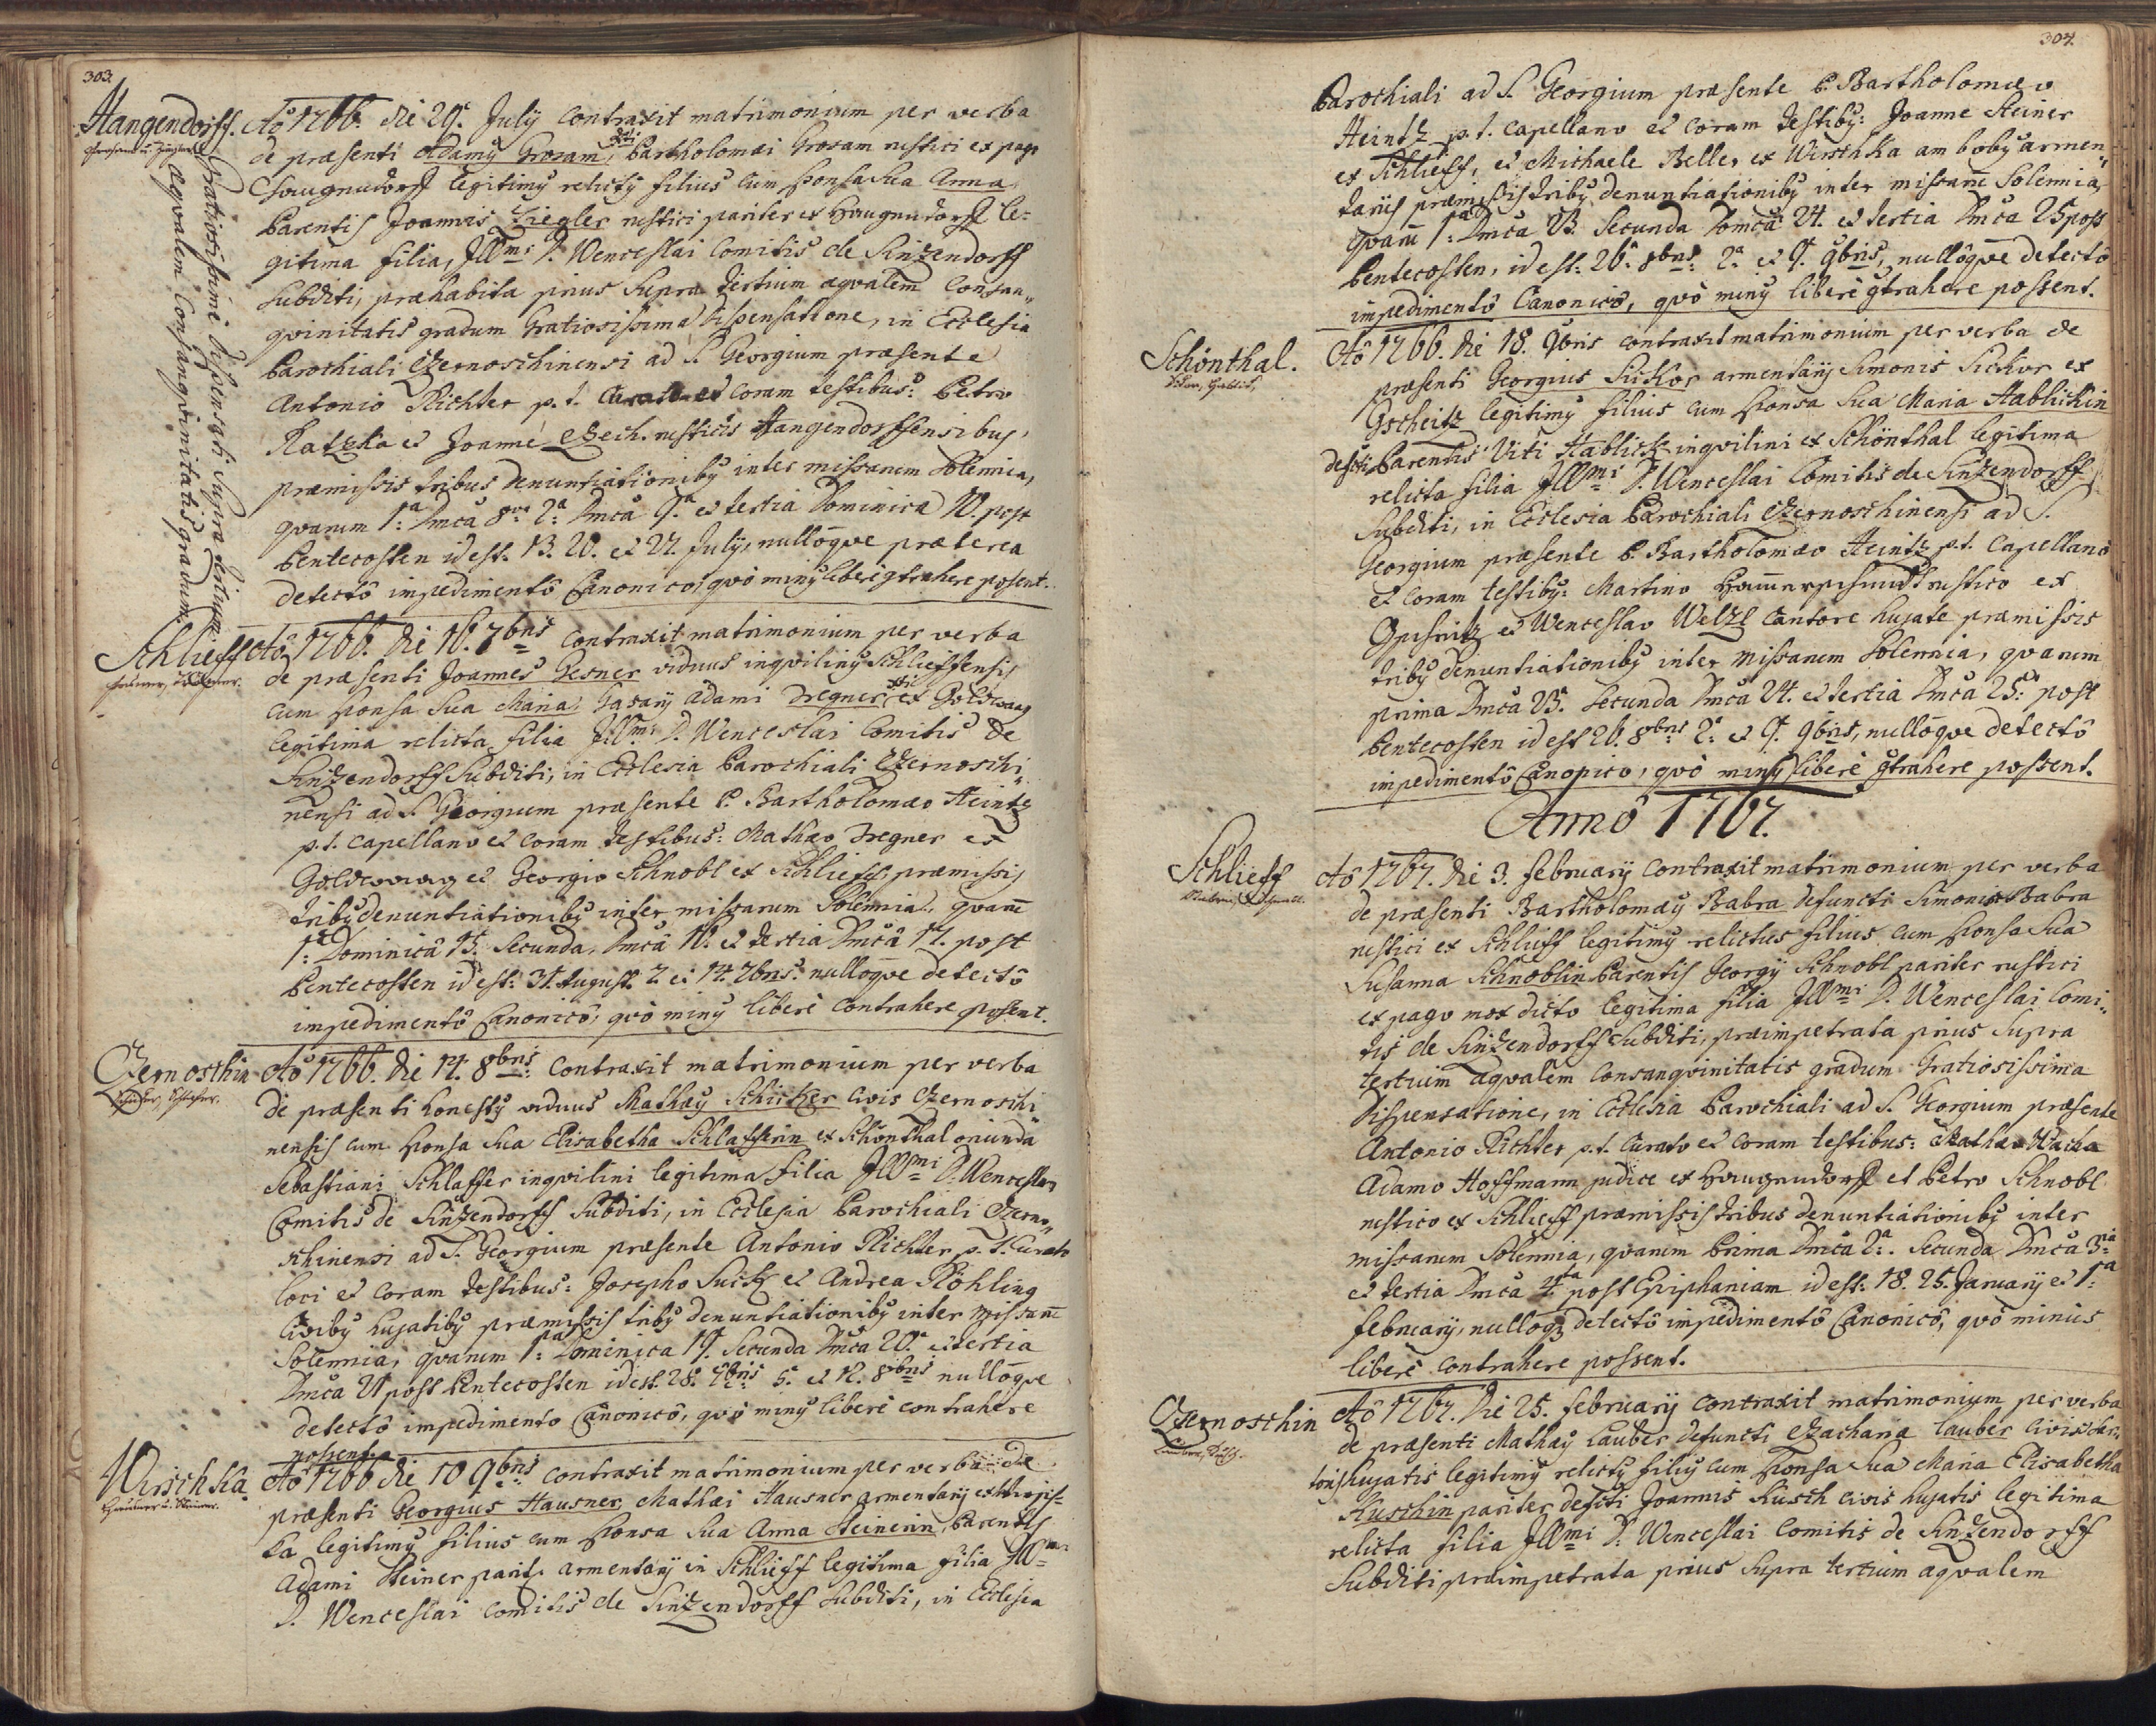 303.
Hangendorff.
Gratiosissime dispensati Supra tertium
aeqvalem Consangvinitatis gradum.
Aô 1766. die 29.ª July contraxit matrimonium per verba
de præsenti Adamy Grosam, Bartholomæi Grosam rustici ex pago
Haugnudorff legitimy relicty filius cum sponsa sua Anna
Parentis Joannis Ziegler rustici pariter ex Haugnudorff le=
gitima filia, Jllmi D. Wenceslai Comitis de Sinzendorff
Subditi, præhabita prius Supra tertium æqvalem Consan„
gvinitatis gradum Gratiosissima dispensatione, in Ecclesia
Parochiali Czernoschinensi ad S. Georgium præsente
Antonio Richter p. t. Curato et coram testibus: Petro
Ratzka et Joanne Czech rusticis Hangendorffensibus,
præmissis tribus denuntiationiby inter missarum Solemnia,
qvarum 1.ª Dmcâ 8va 2.ª Dmcâ 9.ª et tertia Dominica 10. post
Pentecosten id est. 13. 20. et 27. July, nullôqve præterea
detectô impedimentô Canonico, qvô miny liberè gtrahere possent.
Schlieff
Aô 1766. die 16. 7bris contraxit matrimonium per verba
de præsenti Joannes Gesner viduus inqviliny Schlieffensis
cum sponsa sua Maria Gasary Adami Tregner ex Goldwaag
legitima relicta filia Jllmi D. Wenceslai Comitis de
Sinzendorff Subditi, in Ecclesia Parochiali Czernoschi„
nensi ad S. Georgium præsente P. Bartholomæo Heintz
p. t. Capellano et coram testibus: Mathæo Tregner ex
Goldwaag et Georgio Schnobl ex Schlieff, præmissis
triby denuntiationiby inter missarum Solemnia, qvarum
1.ª Dominicâ 15. Secunda Dmcâ 16. et tertia Dmcâ 17. post
Pentecosten id est: 31. August. 7. et 14. 7bris. nullôqve detectô
impedimentô Canonicô, qvô miny liberè contrahere possent.
Czernoschin
Aô 1766. die 14. 8bris: contraxit matrimonium per verba
de præsenti honesty viduus Mathæy Schicker Civis Czernoschi„
nensis cum sponsa sua Elisabetha Schlafferin ex Schönthal oriunda
Sebastiani Schlaffer inqvilini legitima filia Jllmi D. Wenceslai
Comitis de Sinzendorff Subditi, in Ecclesia Parochiali Czerno„
schinensi ad S. Georgium præsente Antonio Richter p. t. Curato
loci et coram testibus: Josepho Suck et Andrea Röhling
Civiby hujatiby præmissis triby denuntiationiby inter Missarum
Solemnia, qvarum 1.ª Dominica 19. Secunda Dmcâ 20.ª et tertia
Dmcâ 21 post Pentecosten id est. 28. 7bris 5. et 12. 8bris nullôqve
detectô impedimento Canonicô, qvô miny liberè contrahere
possent.
Wirschka.
Aô 1766 die 10 9bris contraxit matrimonium per verba de
præsenti Georgius Hausner Mathæi Hausner armentary ex Wirsch=
ka legitimy filius cum sponsa sua Anna Steinerin, Parentis
Adami Steiner parit. armentary in Schlieff legitima filia Jllmi
D. Wenceslai Comitis de Sinzendorff Subditi, in Ecclesia
304.
Parochiali ad S. Georgium præsente P. Bartholomæo
Heintz p. t. Capellano et coram testiby: Joanne Steiner
ex Schlieff, et Michaele Beller ex Wirschka amboby armen„
tariis præmissis triby denuntiationiby inter missarum Solemnia,
qvarum 1.ª Dmca 23. Secunda Domcâ 24. et tertia Dmca 25 post
Pentecosten, id est: 26. 8bris: 2.ª et 9. 9bris, nullôqve detectô
impedimentô Canonicô, qvô miny liberè gtrahere possent.
Schönthal.
Aô 1766. die 18. 9bris contraxit matrimonium per verba de
præsenti Georgius Sickor armentary Simonis Sickor ex
Gscheitz legitimy filius cum sponsa sua Maria Hablickin
defcti Parentis Viti Hablick inqvilini ex Schönthal legitima
relicta filia Jllmi D. Wenceslai Comitis de Sinzendorff
Subditi, in Ecclesia Parochiali Czernoschinensi ad S.
Georgium præsente P. Bartholomæo Heintz p. t. Capellanô
et coram testiby: Martino Hammerschmidt rustico ex
Gscheitz et Wenceslao Welzl Cantore hujate præmissis
triby denuntiationiby inter Missarum Solemnia, qvarum
prima Dmcâ 23.ª Secunda Dmcâ 24. et tertia Dmcâ 25.ª post
Pentecosten id est 26. 8bris 2.ª et 9. 9bris, nullôqve detectô
impedimentô Canonico, qvô miny liberè gtrahere possent.
Anno 1767.
Schlieff
Aô 1767. die 3. february contraxit matrimonium per verba
de præsenti Bartholomæy Babra defuncti Simonis Babra
rustici ex Schlieff legitimy relictus filius cum sponsa sua
Susanna Schnoblin Parentis Georgy Schnobl pariter rustici
ex pago mox dicto legitima filia Jllmi D. Wenceslai Comi„
tis de Sinzendorff Subditi, præimpetrata prius Supra
tertium æqvalem consangvinitatis gradum Gratiosissima
dispensatione, in Ecclesia Parochiali ad S. Georgium præsente
Antonio Richter p. t. Curato et coram testibus:
Adamo Hoffmann judice ex Haugnudorff et Petro Schnobl
rustico ex Schlieff præmissis tribus denuntiationiby inter
missarum Solemnia, qvarum Prima Dmcâ 2.ª. Secunda Dmcâ 3.ia
et tertia Dmcâ 4.ta post Epiphaniam id est: 18. 25. January et 1.ª
february, nullôq detectô impedimentô Canonicô, qvô minus
liberè contrahere possent.
Czernoschin
Aô 1767. Die 25. february contraxit matrimonium per verba
de præsenti Mathæy Lauber defuncti Zacharia Lauber Civis
hujatis legitimy relicty filiy cum sponsa sua Maria Elisabetha
Kuschin pariter defcti Joannis Kusch civis hujatis legitima
relicta filia Jllmi D. Wenceslai Comitis de Sinzendorff
Subditi præimpetrata prius Supra tertium æqvalem